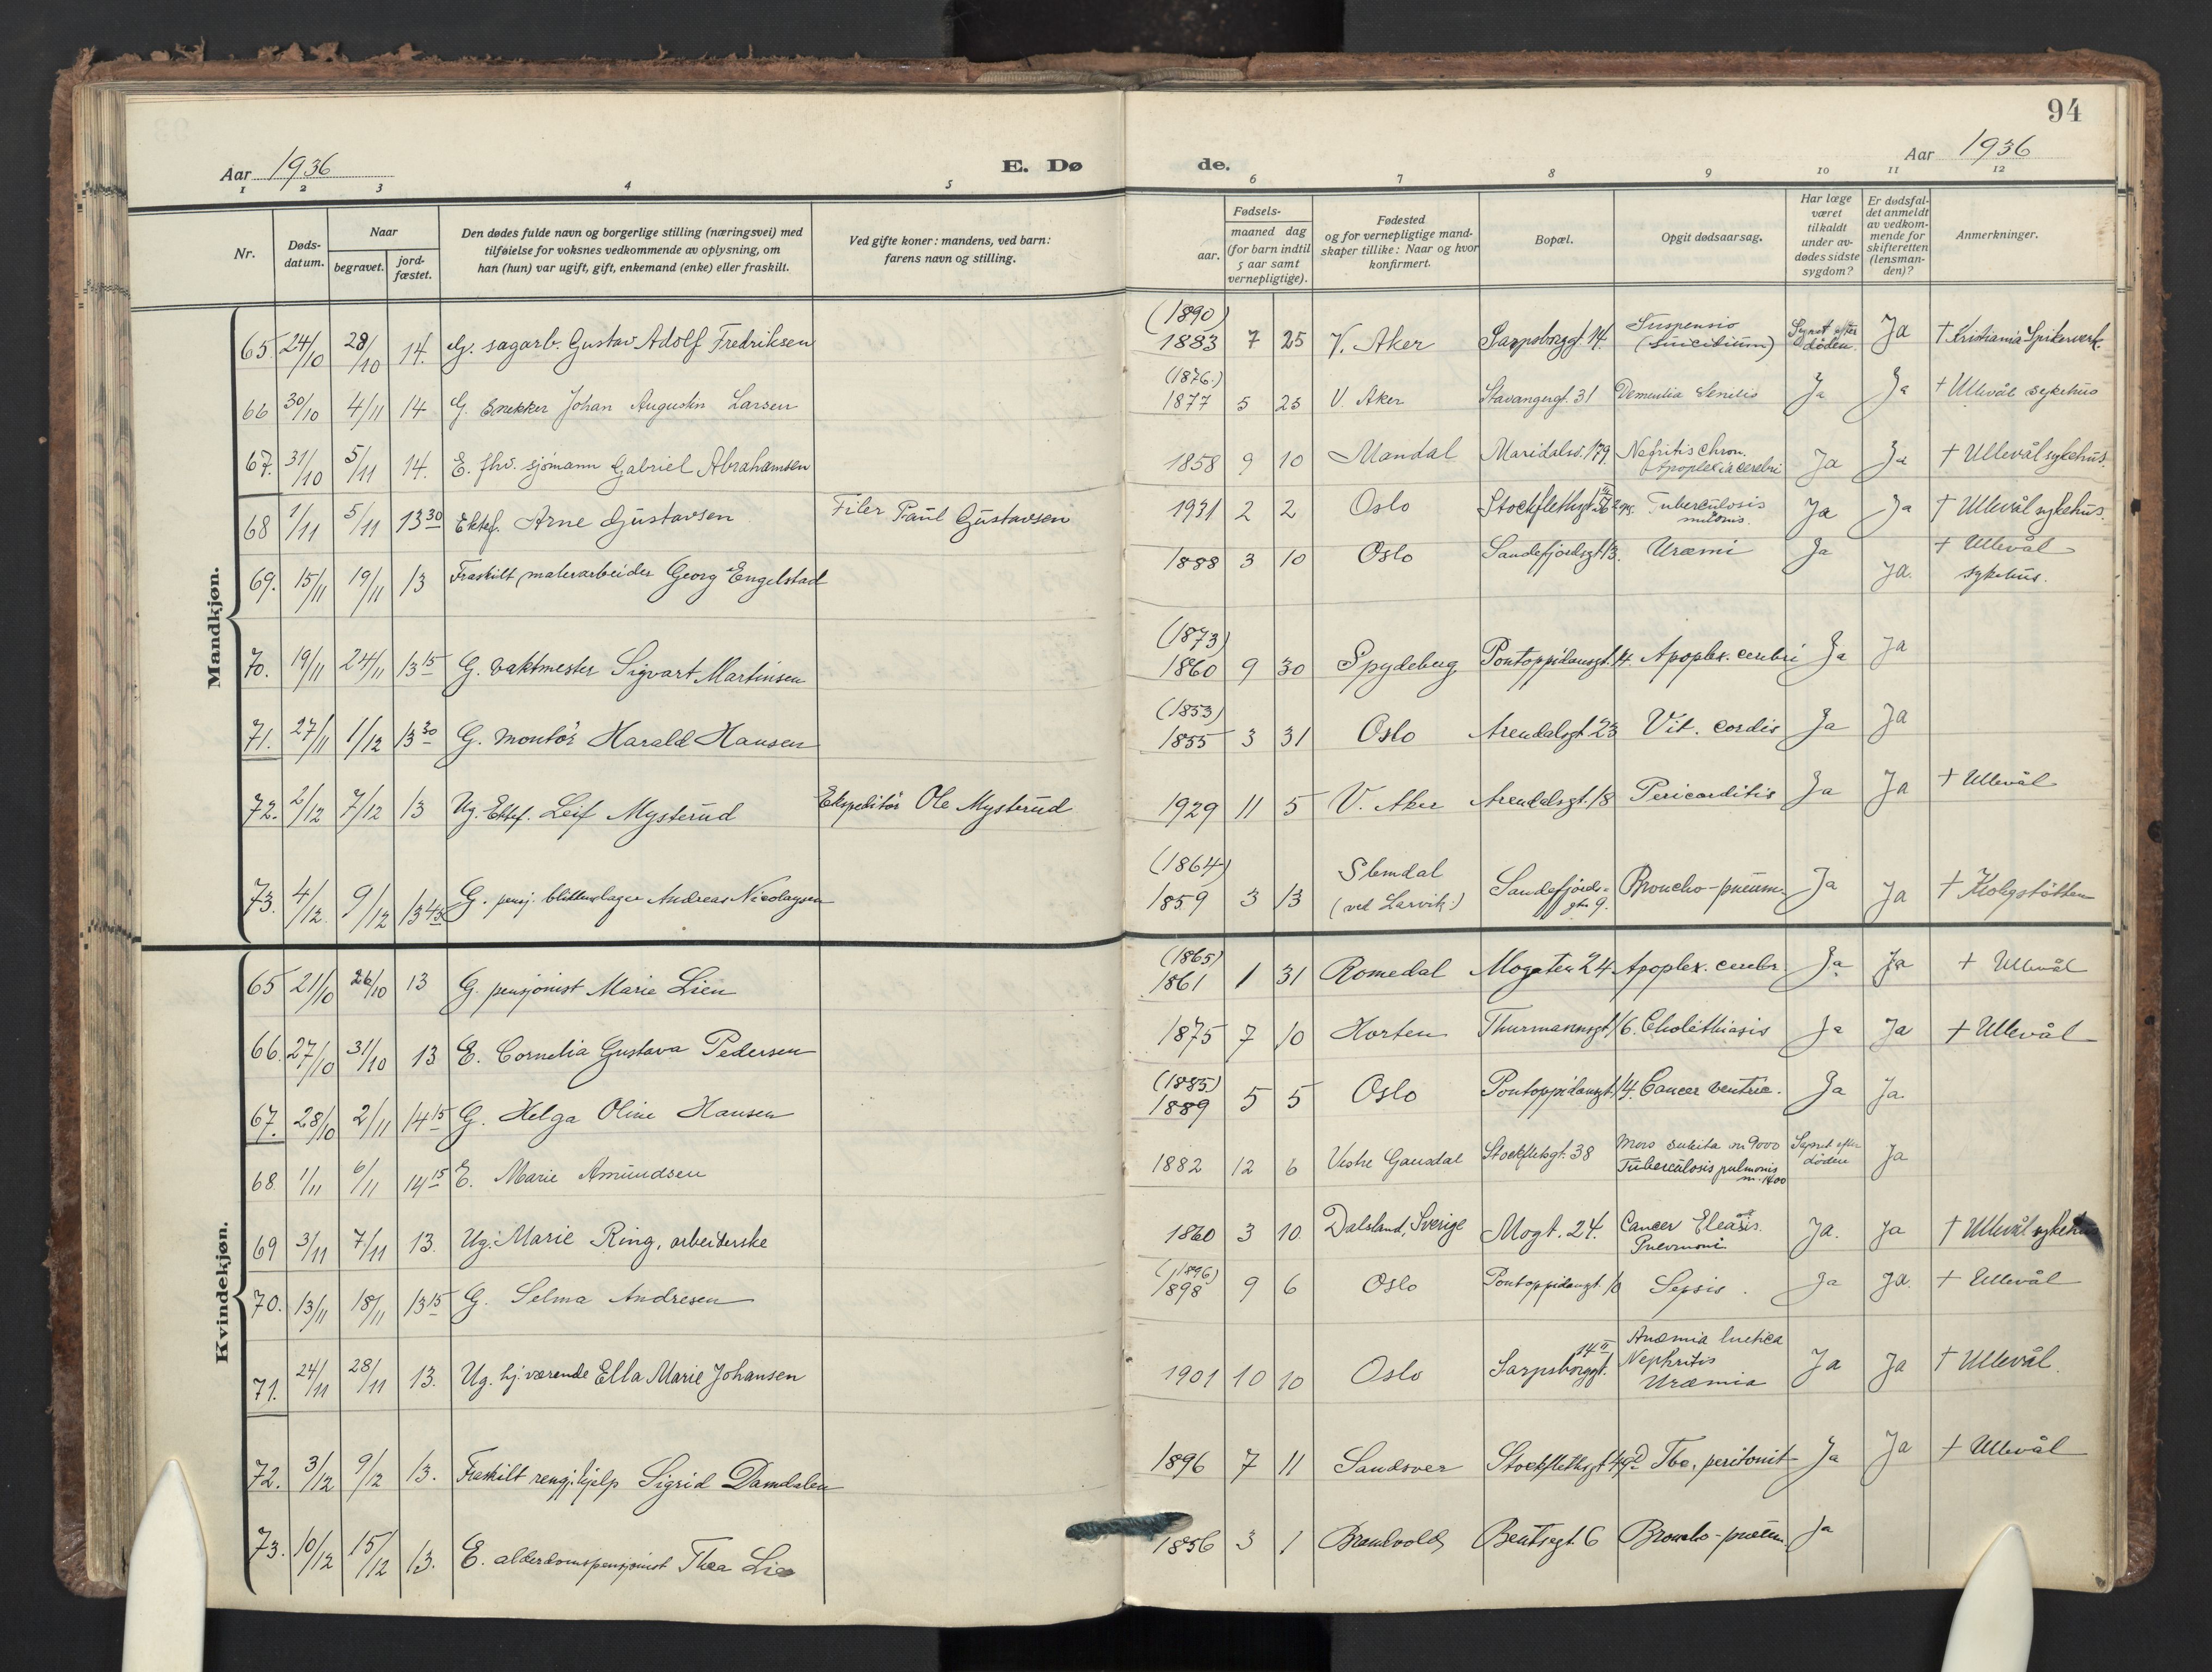 94
Aar 1936
E. Dø
de.
Aar 1936
1 2 3 4 5 6 7 8 9 10 11 12
Nr.
Døds-
datum.
Naar
begravet.
jord-
fæstet.
Den dødes fulde navn og borgerlige stilling (næringsvei) med
tilføielse for voksnes vedkommende av oplysning, om
han (hun) var ugift, gift, enkemand (enke) eller fraskilt.
Ved gifte koner: mandens, ved barn:
farens navn og stilling.
Fødsels-
aar.
maaned dag
(for barn indtil
5 aar samt
vernepligtige).
Fødested
og for vernepligtige mand-
skaper tillike: Naar og hvor
konfirmert.
Bopæl.
Opgit dødsaarsag.
Har læge
været
tilkaldt
under av-
dødes sidste
sygdom?
Er dødsfal-
det anmeldt
av vedkom-
mende for
skifteretten
(lensman-
den)?
Anmerkninger.
Mandkjøn.
65. 24/10 28/10 14. G. sagarb. Gustav Adolf Fredriksen (1890) 1883 7 25 V. Aker Sarpsborggt. 14. Suspensio (Suicidium) Synet efter døden. Ja † Kristiania Spikerverk.
66 30/10 4/11 14 G. Snekker Johan Augustin Larsen (1876.) 1877 5 25 V. Aker Stavangergt. 31 Dementia Senilis Ja Ja † Ullevål sykehus
67. 31/10 5/11 14. E. fhv. sjømann Gabriel Abrahamsen 1858 9 10 Mandal Maridalsv. 179. Nefritis chron. Apoplexia cerebri Ja Ja † Ullevål sykehus.
68 1/11 5/11 13 30 Ektef. Arne Gustavsen Filer Paul Gustavsen 1931 2 2 Oslo Stockflethsgt. Tuberculosis Ja Ja † Ullevål sykehus.
69. 15/11 19/11 13 Fraskilt malerarbeider Georg Engelstad 1888 3 10 Oslo Sandefjordsgt. 13. Uræmi Ja Ja. † Ullevål sykehus.
70. 19/11 24/11 13 15 G. vaktmester Sigvart Martinsen (1873) 1860 9 30 Spydeberg Pontoppidansgt. 14. Apoplex. cerebri Ja Ja
71. 27/11 1/12 13 30 G. montør Harald Hansen (1853) 1855 3 31 Oslo Arendalsgt. 23 Vit. cordis Ja Ja
72. 2/12 7/12 13 Ug. Ektef. Leif Mysterud Ekspeditør Ole Mysterud 1929 11 5 V. Aker Arendalsgt. 18 Pericarditis Ja Ja † Ullevål
73. 4/12 9/12 13 45 G. pensj. blikkenslager Andreas Nicolaysen (1864) 1859 3 13 Slemdal (ved Larvik.) Sandefjords-gtn 9. Broncho-pneum. Ja Ja †
Kvindekjøn.
65 21/10 26/10 13 G. pensjonist Marie Lien (1865) 1861 1 31 Romedal Mogaten 24 Apoplex. cerebr. Ja Ja † Ullevål
66. 27/10 31/10 13 E. Cornelia Gustava Pedersen 1875 7 10 Horten Thurmannsgt. 16. Cholethiasis Ja Ja † Ullevål
67. 28/10 2/11 14 15 G. Helga Oline Hansen (1885) 1889 5 5 Oslo Pontoppidansgt. 14. Cancer ventric. Ja Ja.
68 1/11 6/11 14 15 E. Marie Amundsen 1882 12 6 Vestre Gausdal Stockflethsgt. 38 Mors subita m 9000 Tuberculosis pulmonis m. 1400 Synet efter døden Ja
69 3/11 7/11 13. Ug. Marie Ring, arbeiderske 1860 3 10 Dalsland, Sverige Mogt. 24. Cancer Pneumoni Ja. Ja † Ullevål sykehus
70. 13/11 18/11 13 15 G. Selma Andresen (1896) 1898 9 6 Oslo Pontoppidansgt. 10 Sepsis. Ja Ja. † Ullevål
71. 24/11 28/11 13. Ug. hj. værende Ella Marie Johansen 1901 10 10 Oslo Sarpsborggt. 14 II Anæmia luetica Nephritis Uræmia Ja Ja † Ullevål.
72. 3/12 9/12 13. Fraskilt rengj. hjelp Sigrid Damdalen 1896 7 11 Sandsver Stockflethsgt. Tbc. peritonit Ja Ja † Ullevål
73. 10/12 15/12 13. E. alderdomspensjonist Thea Lie 1856 3 1 Brandvold Bentsegt. 6 Broncho-pneum. Ja